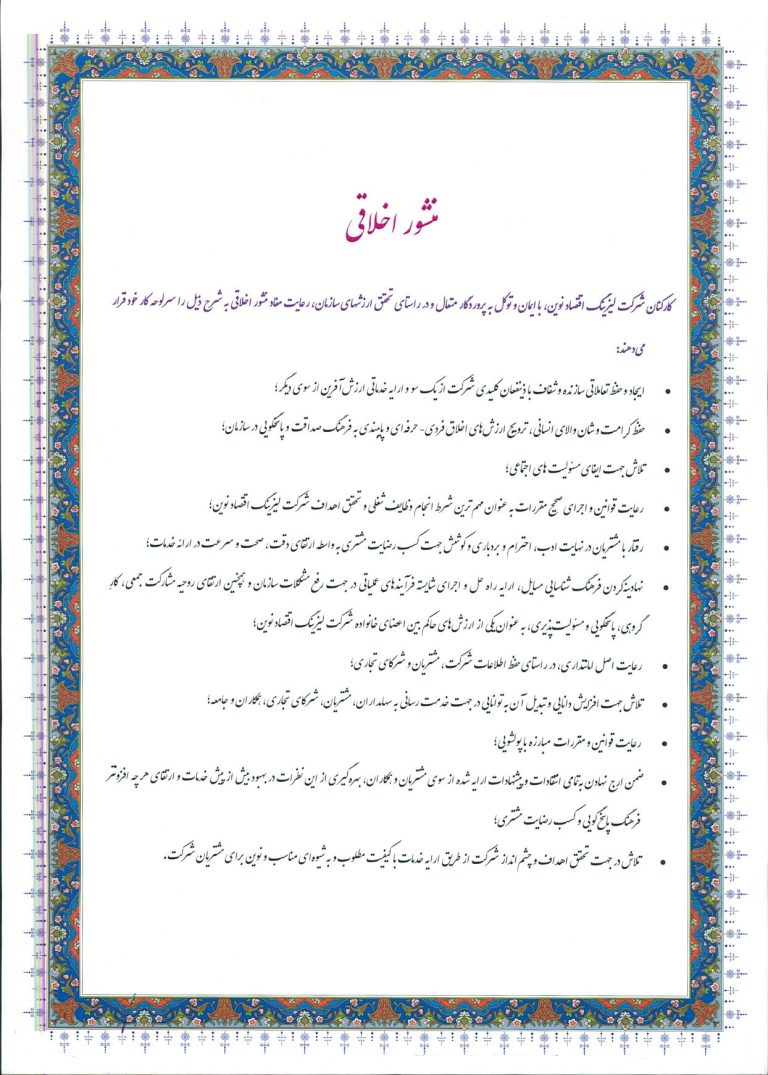 منشور اخلاقی
کارکنان شرکت لیزینگ اقتصاد نوین، با ایمان و توکل به پروردگار متعال و در راستای تحقق ارزشهای سازمان، رعایت مفاد منشور اخلاقی به شرح ذیل را سرلوحه کار خود قرار
می‌دهند:
• ایجاد و حفظ تعاملاتی سازنده و شفاف با ذینفعان کلیدی شرکت از یک سو و ارایه خدماتی ارزش آفرین از سوی دیگر؛
• حفظ کرامت و شان والای انسانی، ترویج ارزش‌های اخلاق فردی- حرفه‌ای و پایبندی به فرهنگ صداقت و پاسخگویی در سازمان؛
• تلاش جهت ایفای مسئولیت های اجتماعی؛
• رعایت قوانین و اجرای صحیح مقررات به عنوان مهم ترین شرط انجام وظایف شغلی و تحقق اهداف شرکت لیزینگ اقتصاد نوین؛
• رفتار با مشتریان در نهایت ادب، احترام و بردباری و کوشش جهت کسب رضایت مشتری به واسطه ارتقای دقت، صحت و سرعت در ارائه خدمات؛
• نهادینه کردن فرهنگ شناسایی مسایل، ارایه راه حل و اجرای شایسته فرآیندهای عملیاتی در جهت رفع مشکلات سازمان و همچنین ارتقای روحیه مشارکت جمعی، کار
گروهی، پاسخگویی و مسئولیت‌پذیری، به عنوان یکی از ارزش‌های حاکم بین اعضای خانواده شرکت لیزینگ اقتصاد نوین؛
• رعایت اصل امانتداری، در راستای حفظ اطلاعات شرکت، مشتریان و شرکای تجاری؛
• تلاش جهت افزایش دانایی و تبدیل آن به توانایی در جهت خدمت رسانی به سهامداران، مشتریان، شرکای تجاری، همکاران و جامعه؛
• رعایت قوانین و مقررات مبارزه با پولشویی؛
• ضمن ارج نهادن به تمامی انتقادات و پیشنهادات ارایه شده از سوی مشتریان و همکاران، بهره‌گیری از این نظرات در بهبود بیش از پیش خدمات و ارتقای هر چه افزونتر
فرهنگ پاسخ‌گویی و کسب رضایت مشتری؛
• تلاش در جهت تحقق اهداف و چشم انداز شرکت از طریق ارایه خدمات با کیفیت مطلوب و به شیوه‌ای مناسب و نوین برای مشتریان شرکت.